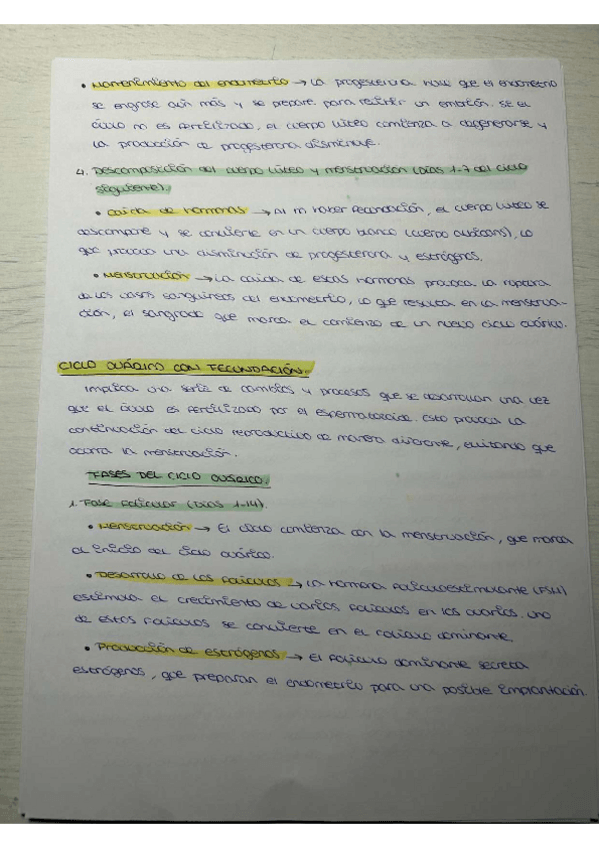 • Mantenimiento del endometrio → La progesterona hace que el endometrio
se engrose aún más y se prepare para recibir un embrión. Si el
óvulo no es fertilizado, el cuerpo lúteo comienza a degenerarse y
la producción de progesterona disminuye.
4. Descomposición del cuerpo lúteo y menstruación (Días 1-7 del ciclo
siguiente).
• Caída de hormonas → Al no haber fecundación, el cuerpo lúteo se
descompone y se convierte en un cuerpo blanco (cuerpo albicans), lo
que provoca una disminución de progesterona y estrógenos.
• Menstruación → La caída de estas hormonas provoca la ruptura
de los vasos sanguíneos del endometrio, lo que resulta en la menstrua-
ción, el sangrado que marca el comienzo de un nuevo ciclo ovárico.
CICLO OVÁRICO CON FECUNDACIÓN.
Implica una serie de cambios y procesos que se desarrollan una vez
que el óvulo es fertilizado por el espermatozoide. Esto provoca la
continuación del ciclo reproductivo de manera diferente, evitando que
ocurra la menstruación.
FASES DEL CICLO OVÁRICO.
1. Fase Folicular (Días 1-14).
• Menstruación → El ciclo comienza con la menstruación, que marca
el inicio del ciclo ovárico.
• Desarrollo de los folículos → La hormona foliculoestimulante (FSH)
estimula el crecimiento de varios folículos en los ovarios. Uno
de estos folículos se convierte en el folículo dominante.
• Producción de estrógenos → El folículo dominante secreta
estrógenos, que preparan el endometrio para una posible implantación.